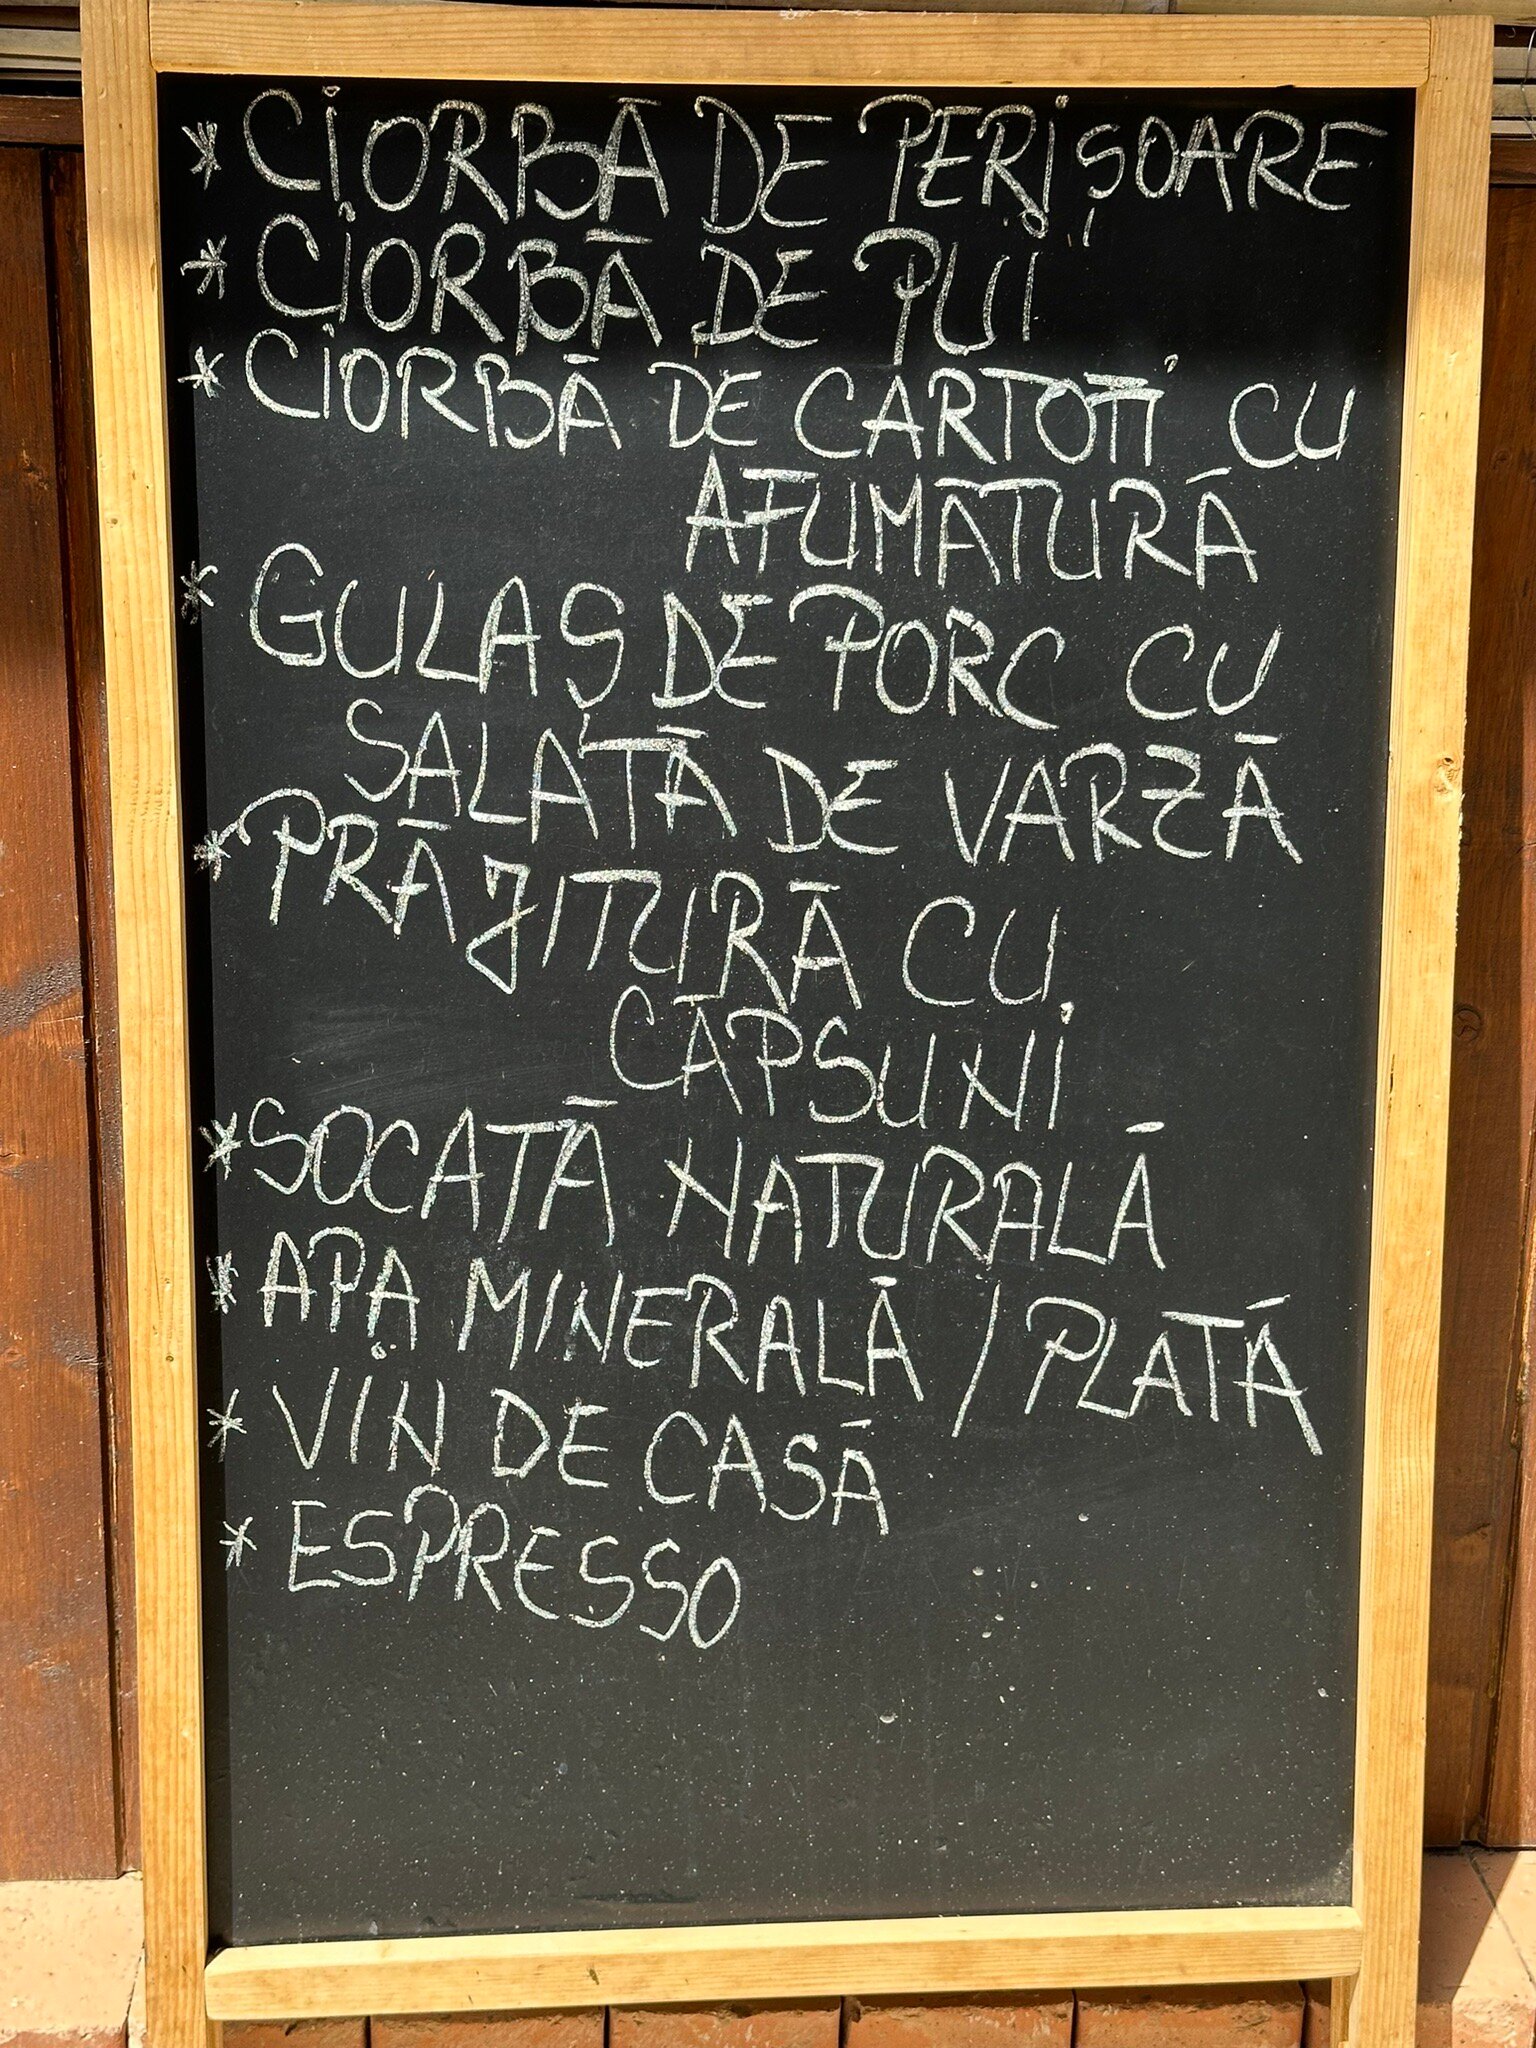 * CIORBĂ DE PERIȘOARE
* CIORBĂ DE PUI
* CIORBĂ DE CARTOFI CU
AFUMĂTURĂ
* GULAȘ DE PORC CU
SALATĂ DE VARZĂ
* PRĂJITURĂ CU
CĂPSUNI
* SOCATĂ NATURALĂ
* APA MINERALĂ / PLATĂ
* VIN DE CASĂ
* ESPRESSO